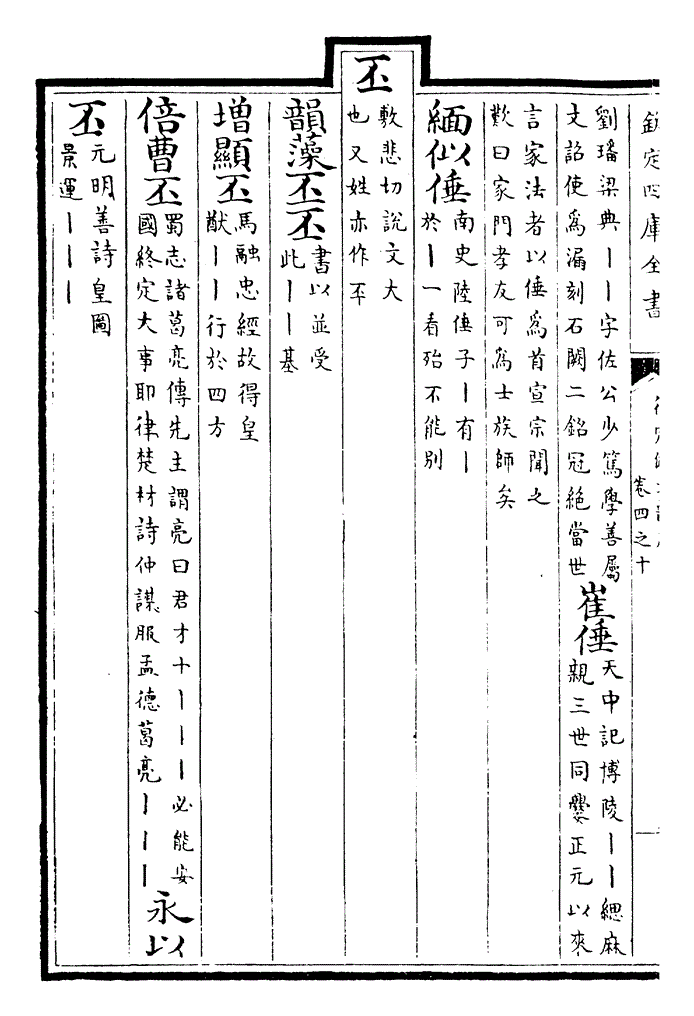 欽定四庫全書
卷四之十
劉璠梁典丨丨字佐公少篤學善屬
文詔使為漏刻石闕二銘冠絶當世
崔倕
天中記博陵丨丨緦麻
親三世同爨正元以來
言家法者以倕為首宣宗聞之
歎曰家門孝友可為士族師矣
緬似倕
南史陸倕子丨有丨
於丨一看殆不能别
丕
敷悲切說文大
也又姓亦作㔻
韻藻丕丕
書以並受
此丨丨基
增顯丕
馬融忠經故得皇
猷丨丨行於四方
倍曹丕
蜀志諸葛亮傳先主謂亮曰君才十丨丨丨必能安
國終定大事耶律楚材詩仲謀服孟德葛亮丨丨丨
永以
丕
元明善詩皇圖
景運丨丨丨